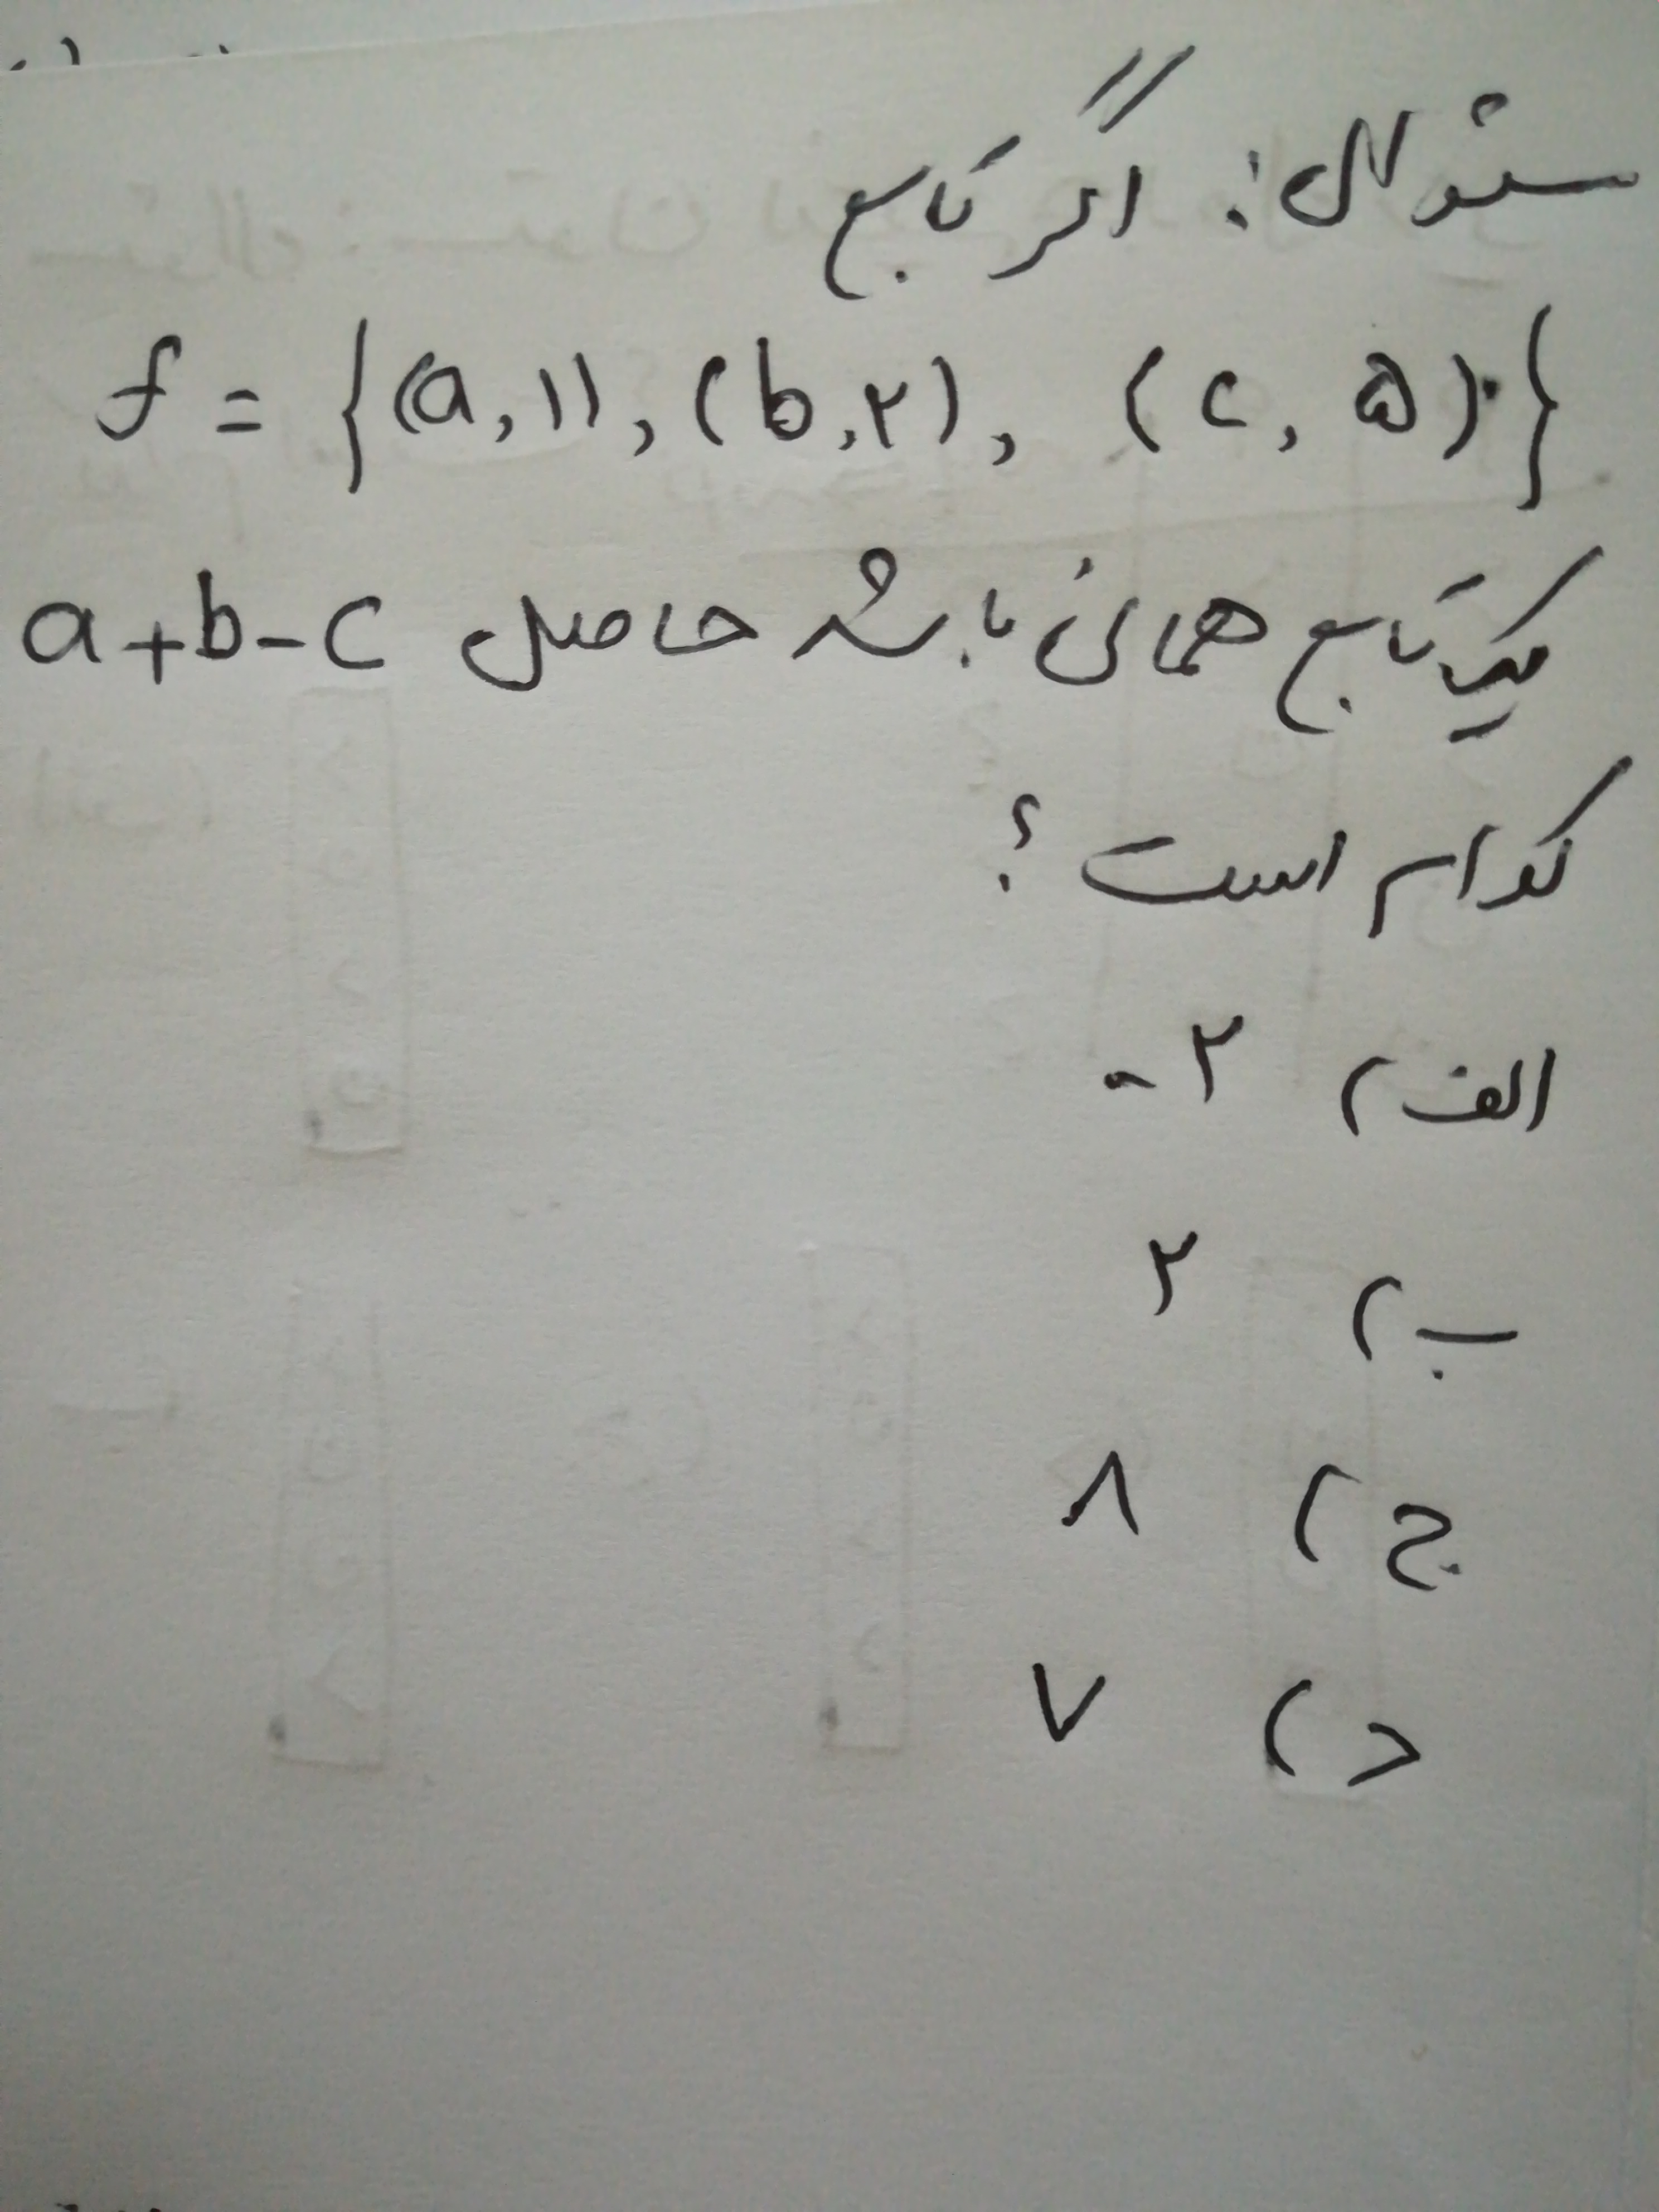 سئوال: اگر تابع
f = {(a,1), (b,۲), (c, ۵)}
یک تابع همانی باشد حاصل a+b-c
کدام است؟
الف) -۲
ب) ۲
ج) ۸
د) ۷